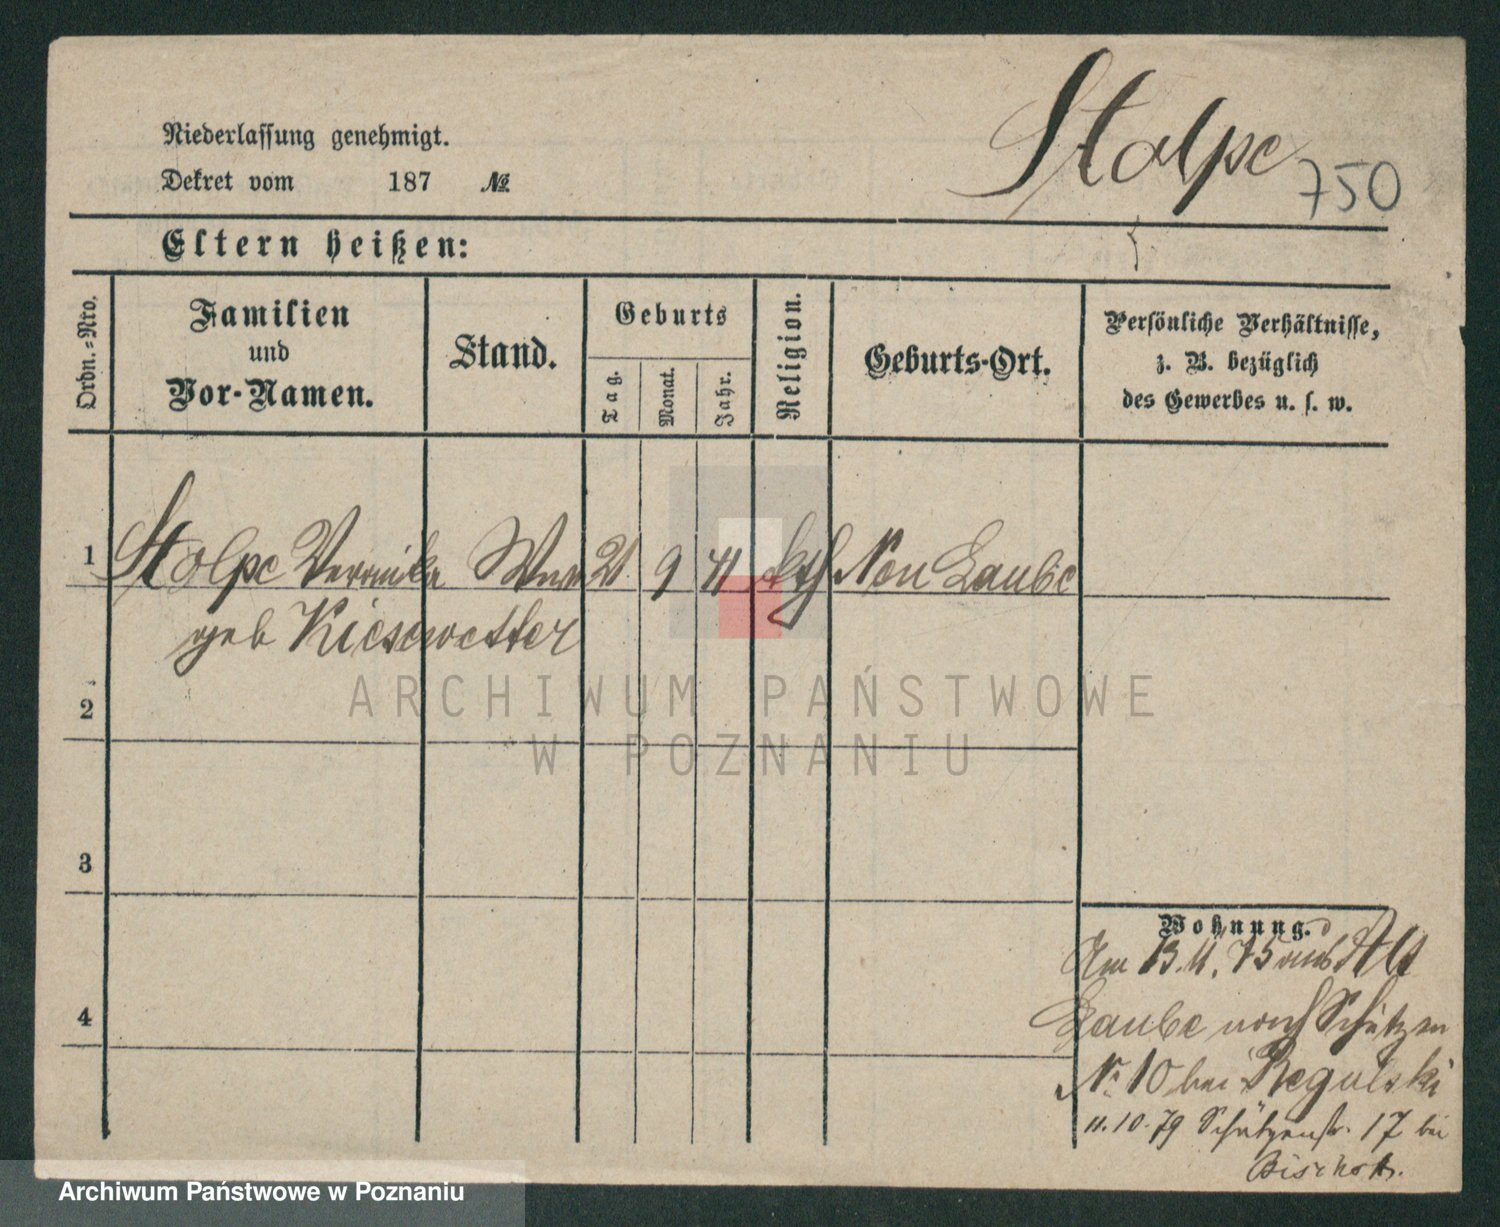 Stolpe
750
Niederlassung genehmigt.
Dekret vom 187 №
Eltern heißen:
Ordn.=Nro.
Familien
und
Vor-Namen.
Stand.
Geburts
Tag.
Monat.
Jahr.
Religion.
Geburts-Ort.
Persönliche Verhältnisse,
z. B. bezüglich
des Gewerbes u. s. w.
1 Stolpe Veronika 21 9 41 kth Neu Laube
geb Kiesewetter
2
3
4
Wohnung.
Am 13.11.75 aus Alt
Laube nach Schützen
Nr. 10 bei Regulski
11.10.79 Schützenstr. 17 bei
ARCHIWUM PAŃSTWOWE
W POZNANIU
Archiwum Państwowe w Poznaniu